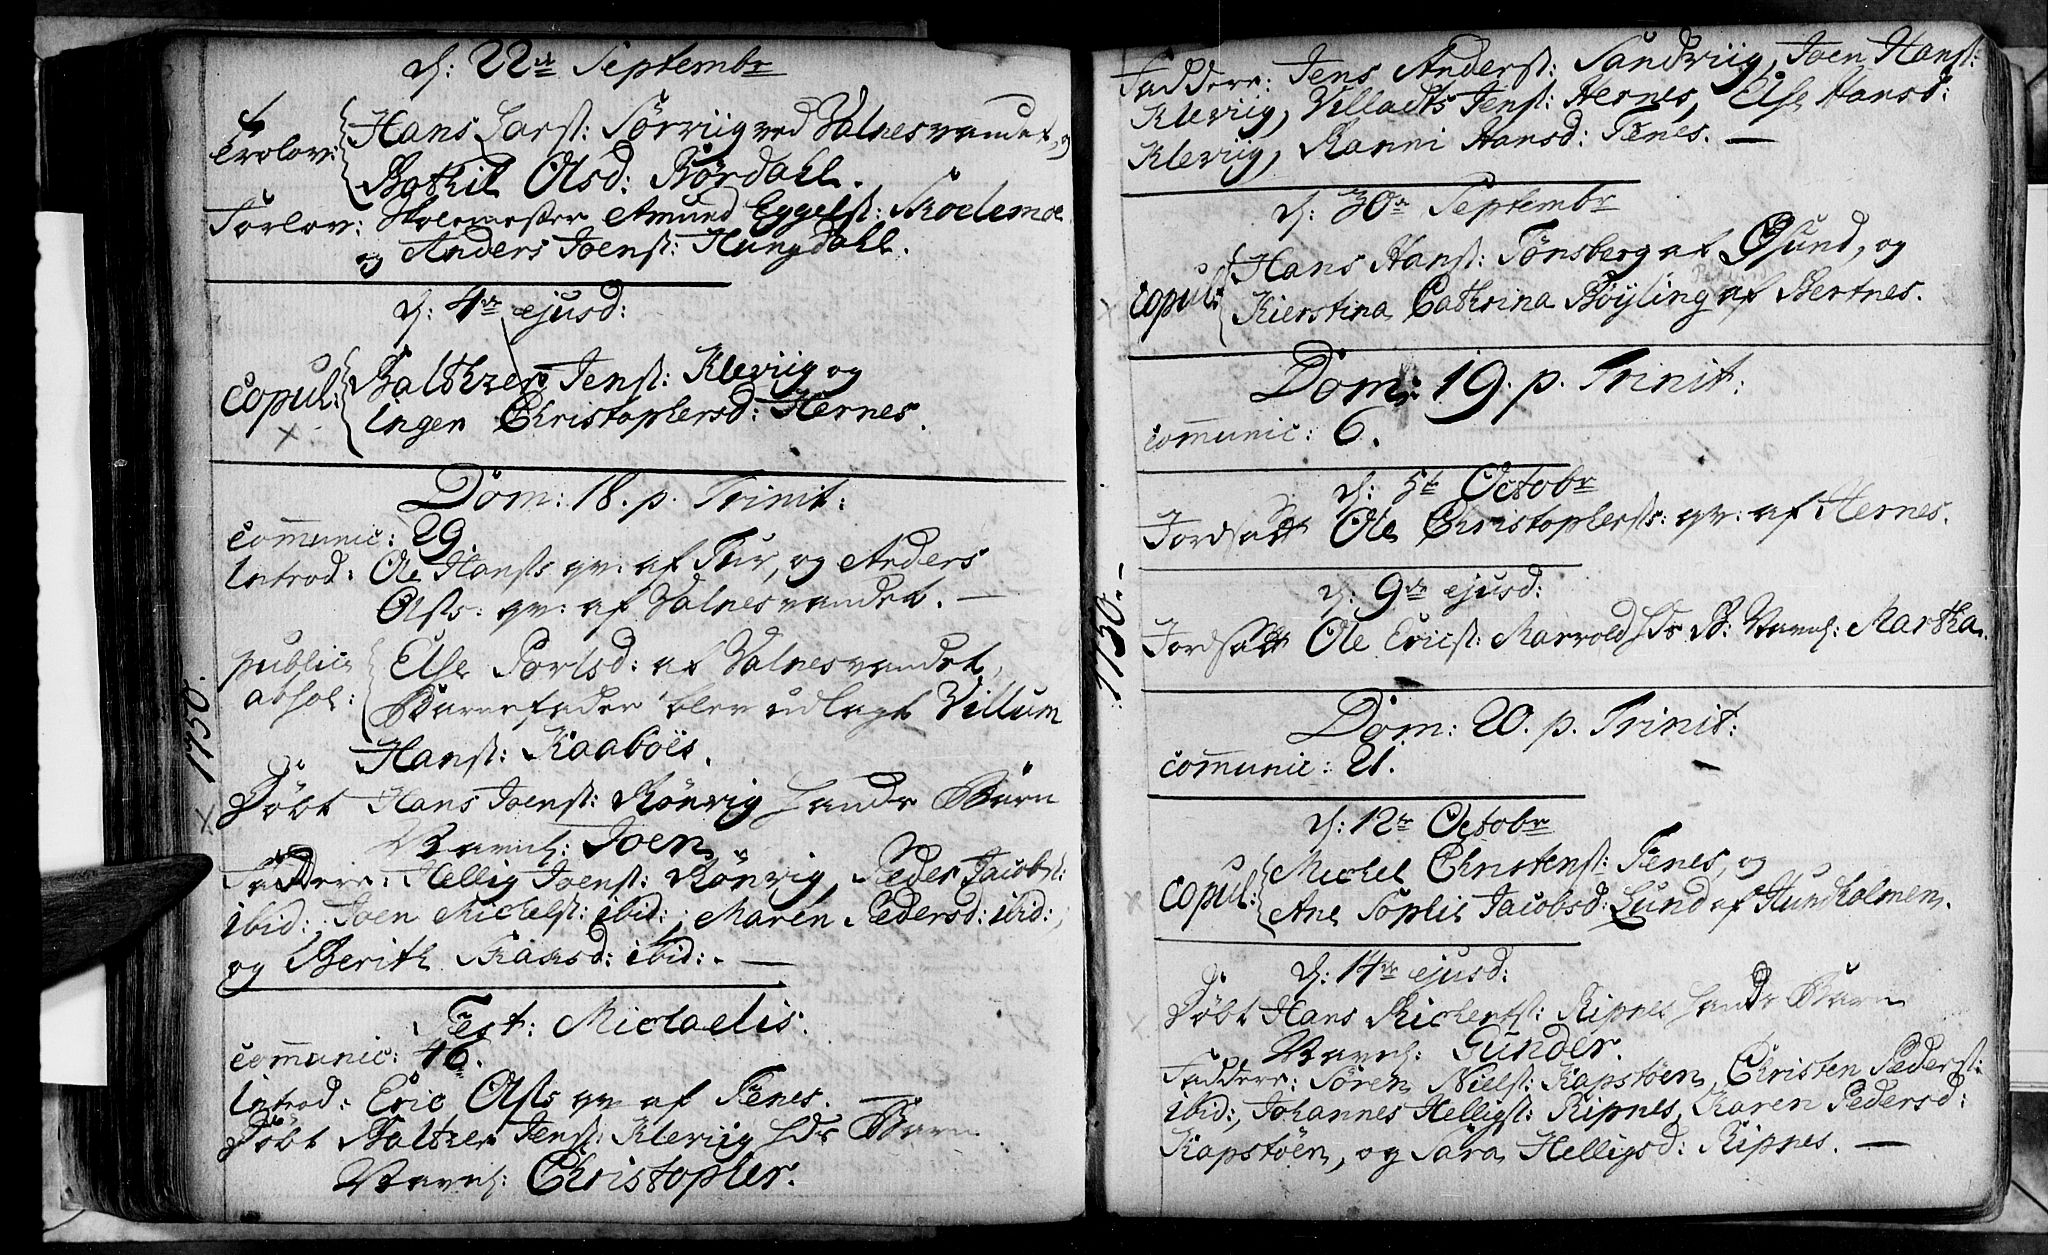 d: 22de Septembr
Trolov: Hans Larss: Sörviig ved Valnesvandet, og
Bothil Olsd: Bördahl.
Forlov: Skolemester Amund Eggelss: Moelemoe
og Anders Joenss: Hungdahl.
d: 4de ejusd:
Copul: Balthzer Jenss: Kleviig og
Inger Christophersd: Hernes.
Dom: 18. p. Trinit:
Communic: 29
Introd: Ole Hanss qv: af Tur, og Anders
Olss: qv: af Valnesvandet. —
publice absol: Else Porlsd: af Valnesvandet,
Barnefader blev udlagt Villum
Hanss: Kaaböes.
1750.
Döbt Hans Joenss: Rönvig hands Barn
Navnl: Joen
Faddere: Hellig Joenss: Rönvig, Peder Jacobss:
ibid:, Joen Michelss: ibid:, Maren Pedersd: ibid:,
og Berith Isaksd: ibid: . —
Fest: Michaelis.
Communic: 46.
Introd: Eric Olss qv af Fenes. —
Döbt Baltzer Jenss: Kleviig hds Barn
Navnl: Christopher.
Faddere: Jens Anderss: Sandviig, Joen Hanss:
Kleviig, Villadts Jenss: Hernes, Else Hansd:
Kleviig, Ranni Hansd: Fenes. —
d: 30te Septembr
Copul: Hans Hanss: Tönsberg af Ösund, og
Kierstina Cathrina Böyling af Bertnes.
Dom: 19. p. Trinit:
Communic: 6.
d: 5te Octobr
Jordsatt Ole Christopherss: qv: af Hernes.
1750.
d: 9de ejusd:
Jordsatt Ole Ericss: Marvold hds B: Navnl: Martha.
Dom: 20. p. Trinit:
Communic: 21.
d: 12te Octobr
Copul: Michel Christenss: Fenes, og
Ane Sophie Jacobsd: Lund af Hundholmen.
d: 14de ejusd:
Döbt Hans Richertss: Ripnes hands Barn
Navnl: Gunder.
Faddere: Sören Nielss: Kapstöen, Christen Pederss:
ibid:, Johannes Helligss: Ripnes, Karen Pedersd:
Kapstöen, og Sara Helligsd: Ripnes. —